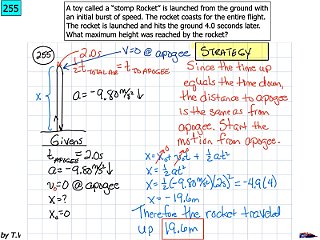 255
A toy called a "stomp Rocket" is launched from the ground with
an initial burst of speed. The rocket coasts for the entire flight.
The rocket is launched and hits the ground 4.0 seconds later.
What maximum height was reached by the rocket?
255
2.0s
V=0 @ apogee
½ t TOTAL AIR = t TO APOGEE
x
a=-9.80 m/s² ↓
STRATEGY
Since the time up
equals the time down,
the distance to apogee
is the same as from
apogee. Start the
motion from apogee.
Givens
t APOGEE = 2.0s
a=-9.80 m/s² ↓
v₀=0 @ apogee
x=?
x₀=0
x=x₀+v₀t+½at²
x=½at²
x=½(-9.80 m/s²)(2.0)²=-4.9(4)
x=-19.6m
Therefore the rocket traveled
up 19.6m
by T.W